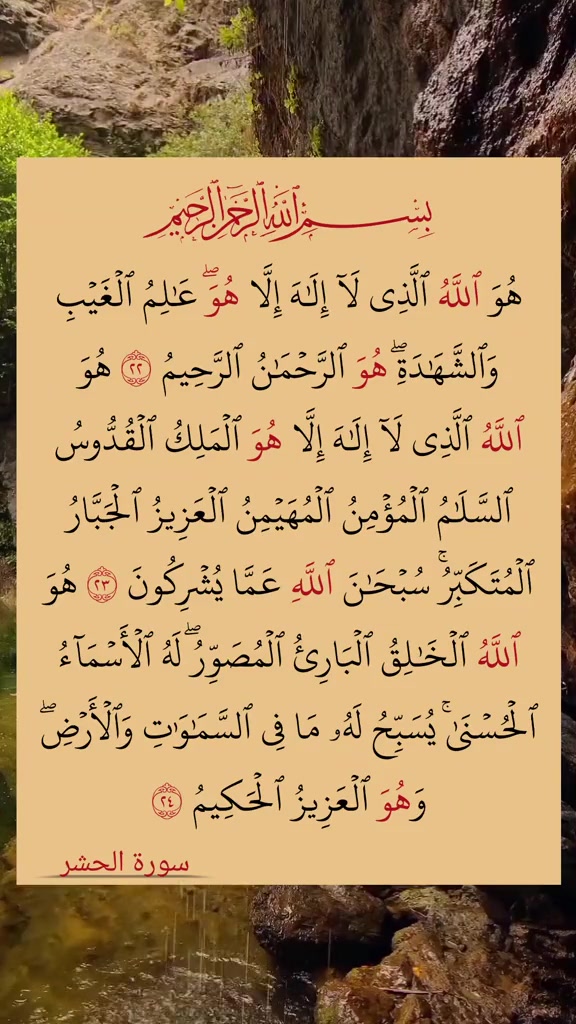 بِسْمِ ٱللَّهِ ٱلرَّحْمَٰنِ ٱلرَّحِيمِ
هُوَ ٱللَّهُ ٱلَّذِى لَآ إِلَـٰهَ إِلَّا هُوَ ۖ عَـٰلِمُ ٱلْغَيْبِ
وَٱلشَّهَـٰدَةِ ۖ هُوَ ٱلرَّحْمَـٰنُ ٱلرَّحِيمُ ٢٢ هُوَ
ٱللَّهُ ٱلَّذِى لَآ إِلَـٰهَ إِلَّا هُوَ ٱلْمَلِكُ ٱلْقُدُّوسُ
ٱلسَّلَـٰمُ ٱلْمُؤْمِنُ ٱلْمُهَيْمِنُ ٱلْعَزِيزُ ٱلْجَبَّارُ
ٱلْمُتَكَبِّرُ ۚ سُبْحَـٰنَ ٱللَّهِ عَمَّا يُشْرِكُونَ ٢٣ هُوَ
ٱللَّهُ ٱلْخَـٰلِقُ ٱلْبَارِئُ ٱلْمُصَوِّرُ ۖ لَهُ ٱلْأَسْمَآءُ
ٱلْحُسْنَىٰ ۚ يُسَبِّحُ لَهُۥ مَا فِى ٱلسَّمَـٰوَٰتِ وَٱلْأَرْضِ ۖ
وَهُوَ ٱلْعَزِيزُ ٱلْحَكِيمُ ٢٤
سورة الحشر